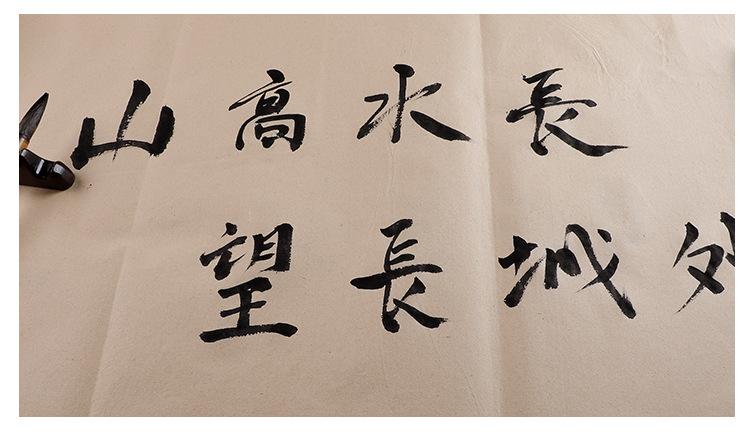 山高水長
望長城